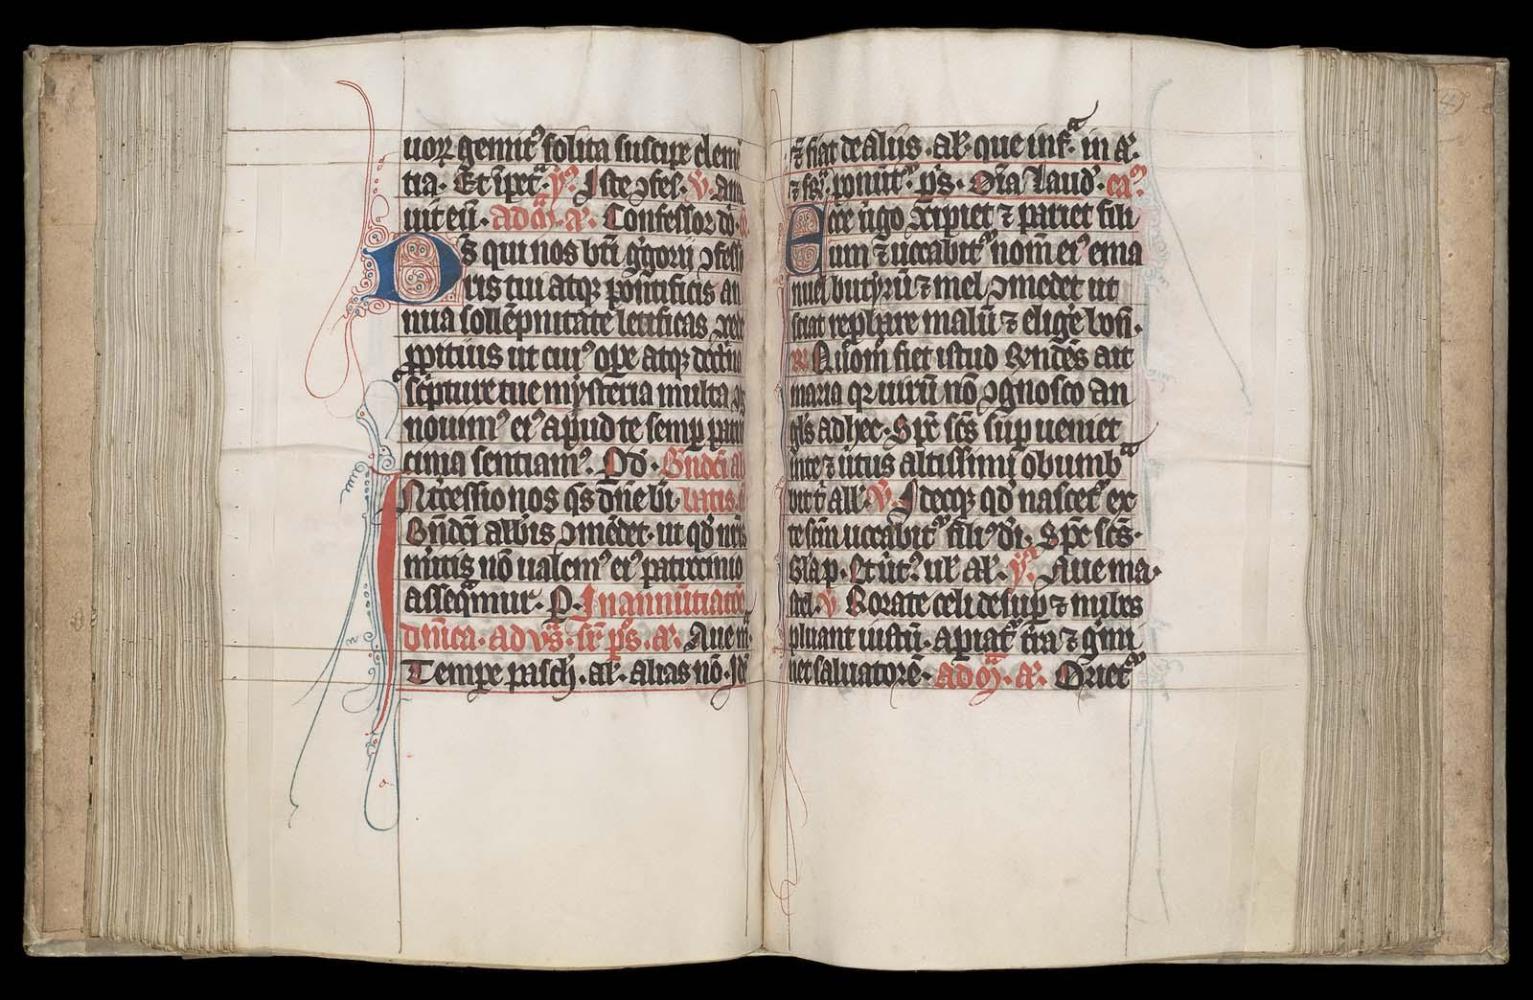 uoꝝ gemitꝰ solita suscipe clem̄
tia. Et īpet᷒. yꝰ. Iste ꝯfes. v. Ama
uit eū. ad m̄. a᷒. Confessor dō.
Ds qui nos bt̄i g̾gorij ꝯfess
ris tui atqꝫ pōntificis an
nua sollēpnitate letificas ꝯcede
ꝓpitius ut cuiꝰ ope atqꝫ doct̾na
sc̾pture tue mysteria multa ꝯg
nouimꝰ eiꝰ apud te semꝑ patro
cinia sentiamꝰ. Od. Bn̄dc̄i ab
Nt̾cessio nos q̄s dn̄e bt̄i batis.
Bn̄dc̄i abb̄is ꝯmēdet. ut qd̄ nr̄is
mitis nō ualemꝰ eiꝰ patrocinio
asseq̾mur. P. In annūtiatōe
dn̄ica. ad vs̄. sr̄ pꝰs. a᷒. Aue m̄.
Tempe pasch᷒. al᷒. alias nō. sed
⁊ fiat de aliis. al᷒. que inf᷒. in a᷒.
⁊ sr̄. ponūt᷒. pꝰs. Oīa laud᷒. ca᷒.
Ecce ūgo ꝯcipiet ⁊ pariet fili
um ⁊ uocabit᷒ nom̄ eiꝰ ema
nuel butyrū ⁊ mel ꝯmedet ut
sciat rep̾bare malū ⁊ elig̾e bonū.
R᷒ Quom̄ fiet istud Rn̄dēs ait
maria qꝛ uirū nō ꝯgnosco an
gl̄s ad hec. Sp̄c sc̄s suꝑ ueniet
in te ⁊ uirtus altissimi obumb᷒
bit t᷒ all᷒. v. Ideoqꝫ qd̄ nascet᷒ ex
te sc̄m uocabit᷒ filiꝰ dī. Sp̄c sc̄s.
Gl̄a p. Et ūt᷒. ul᷒ al᷒. y᷒. Aue ma.
stel. v Rorate celi desuꝑ ⁊ nubes
pluant iustū. apiat᷒ tr̄a ⁊ g̾mi
net saluatorē. ad m̄. a᷒. Oriet᷒